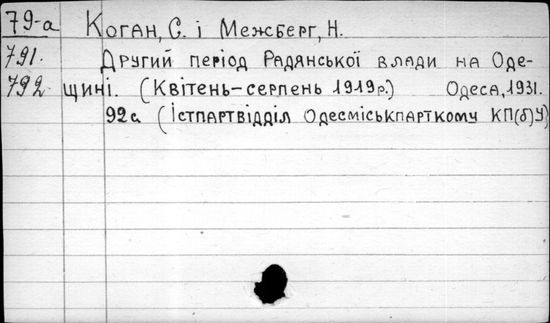 79-а Коган, С. і Межберг, Н.
791. Другий період Радянської влади на Оде-
792 щині. (Квітень-серпень 1919р.) Одеса, 1931.
92с (Істпартвідділ Одесміськпарткому КП(б)У)